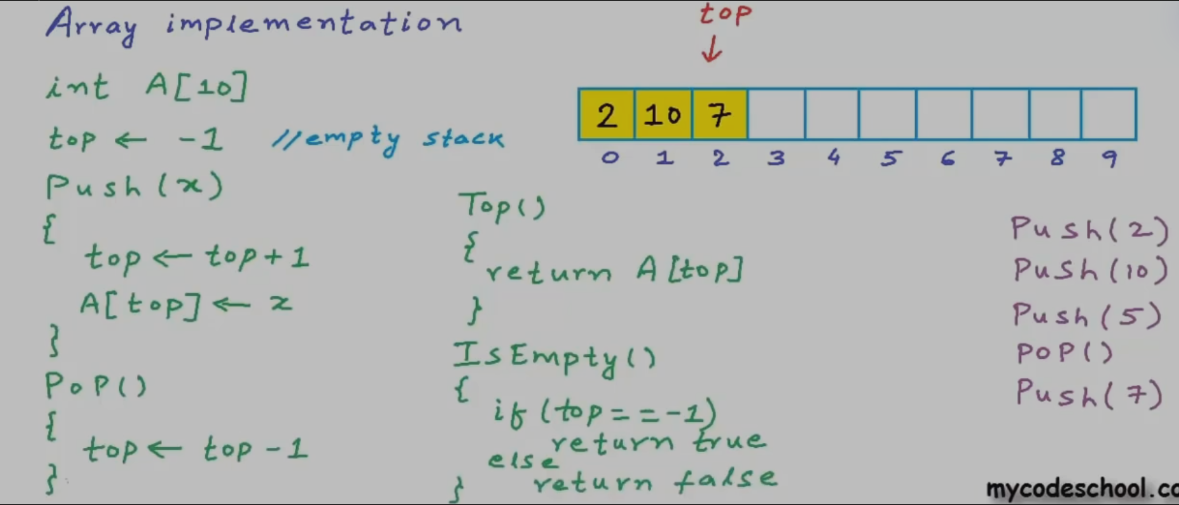 Array implementation
int A[10]
top ← -1 //empty stack
Push(x)
{
top ← top+1
A[top] ← x
}
PoP()
{
top ← top -1
}
Top()
{
return A[top]
}
IsEmpty()
{
if (top == -1)
return true
else
return false
}
top
↓
2 10 7
0 1 2 3 4 5 6 7 8 9
Push(2)
Push(10)
Push(5)
PoP()
Push(7)
mycodeschool.co